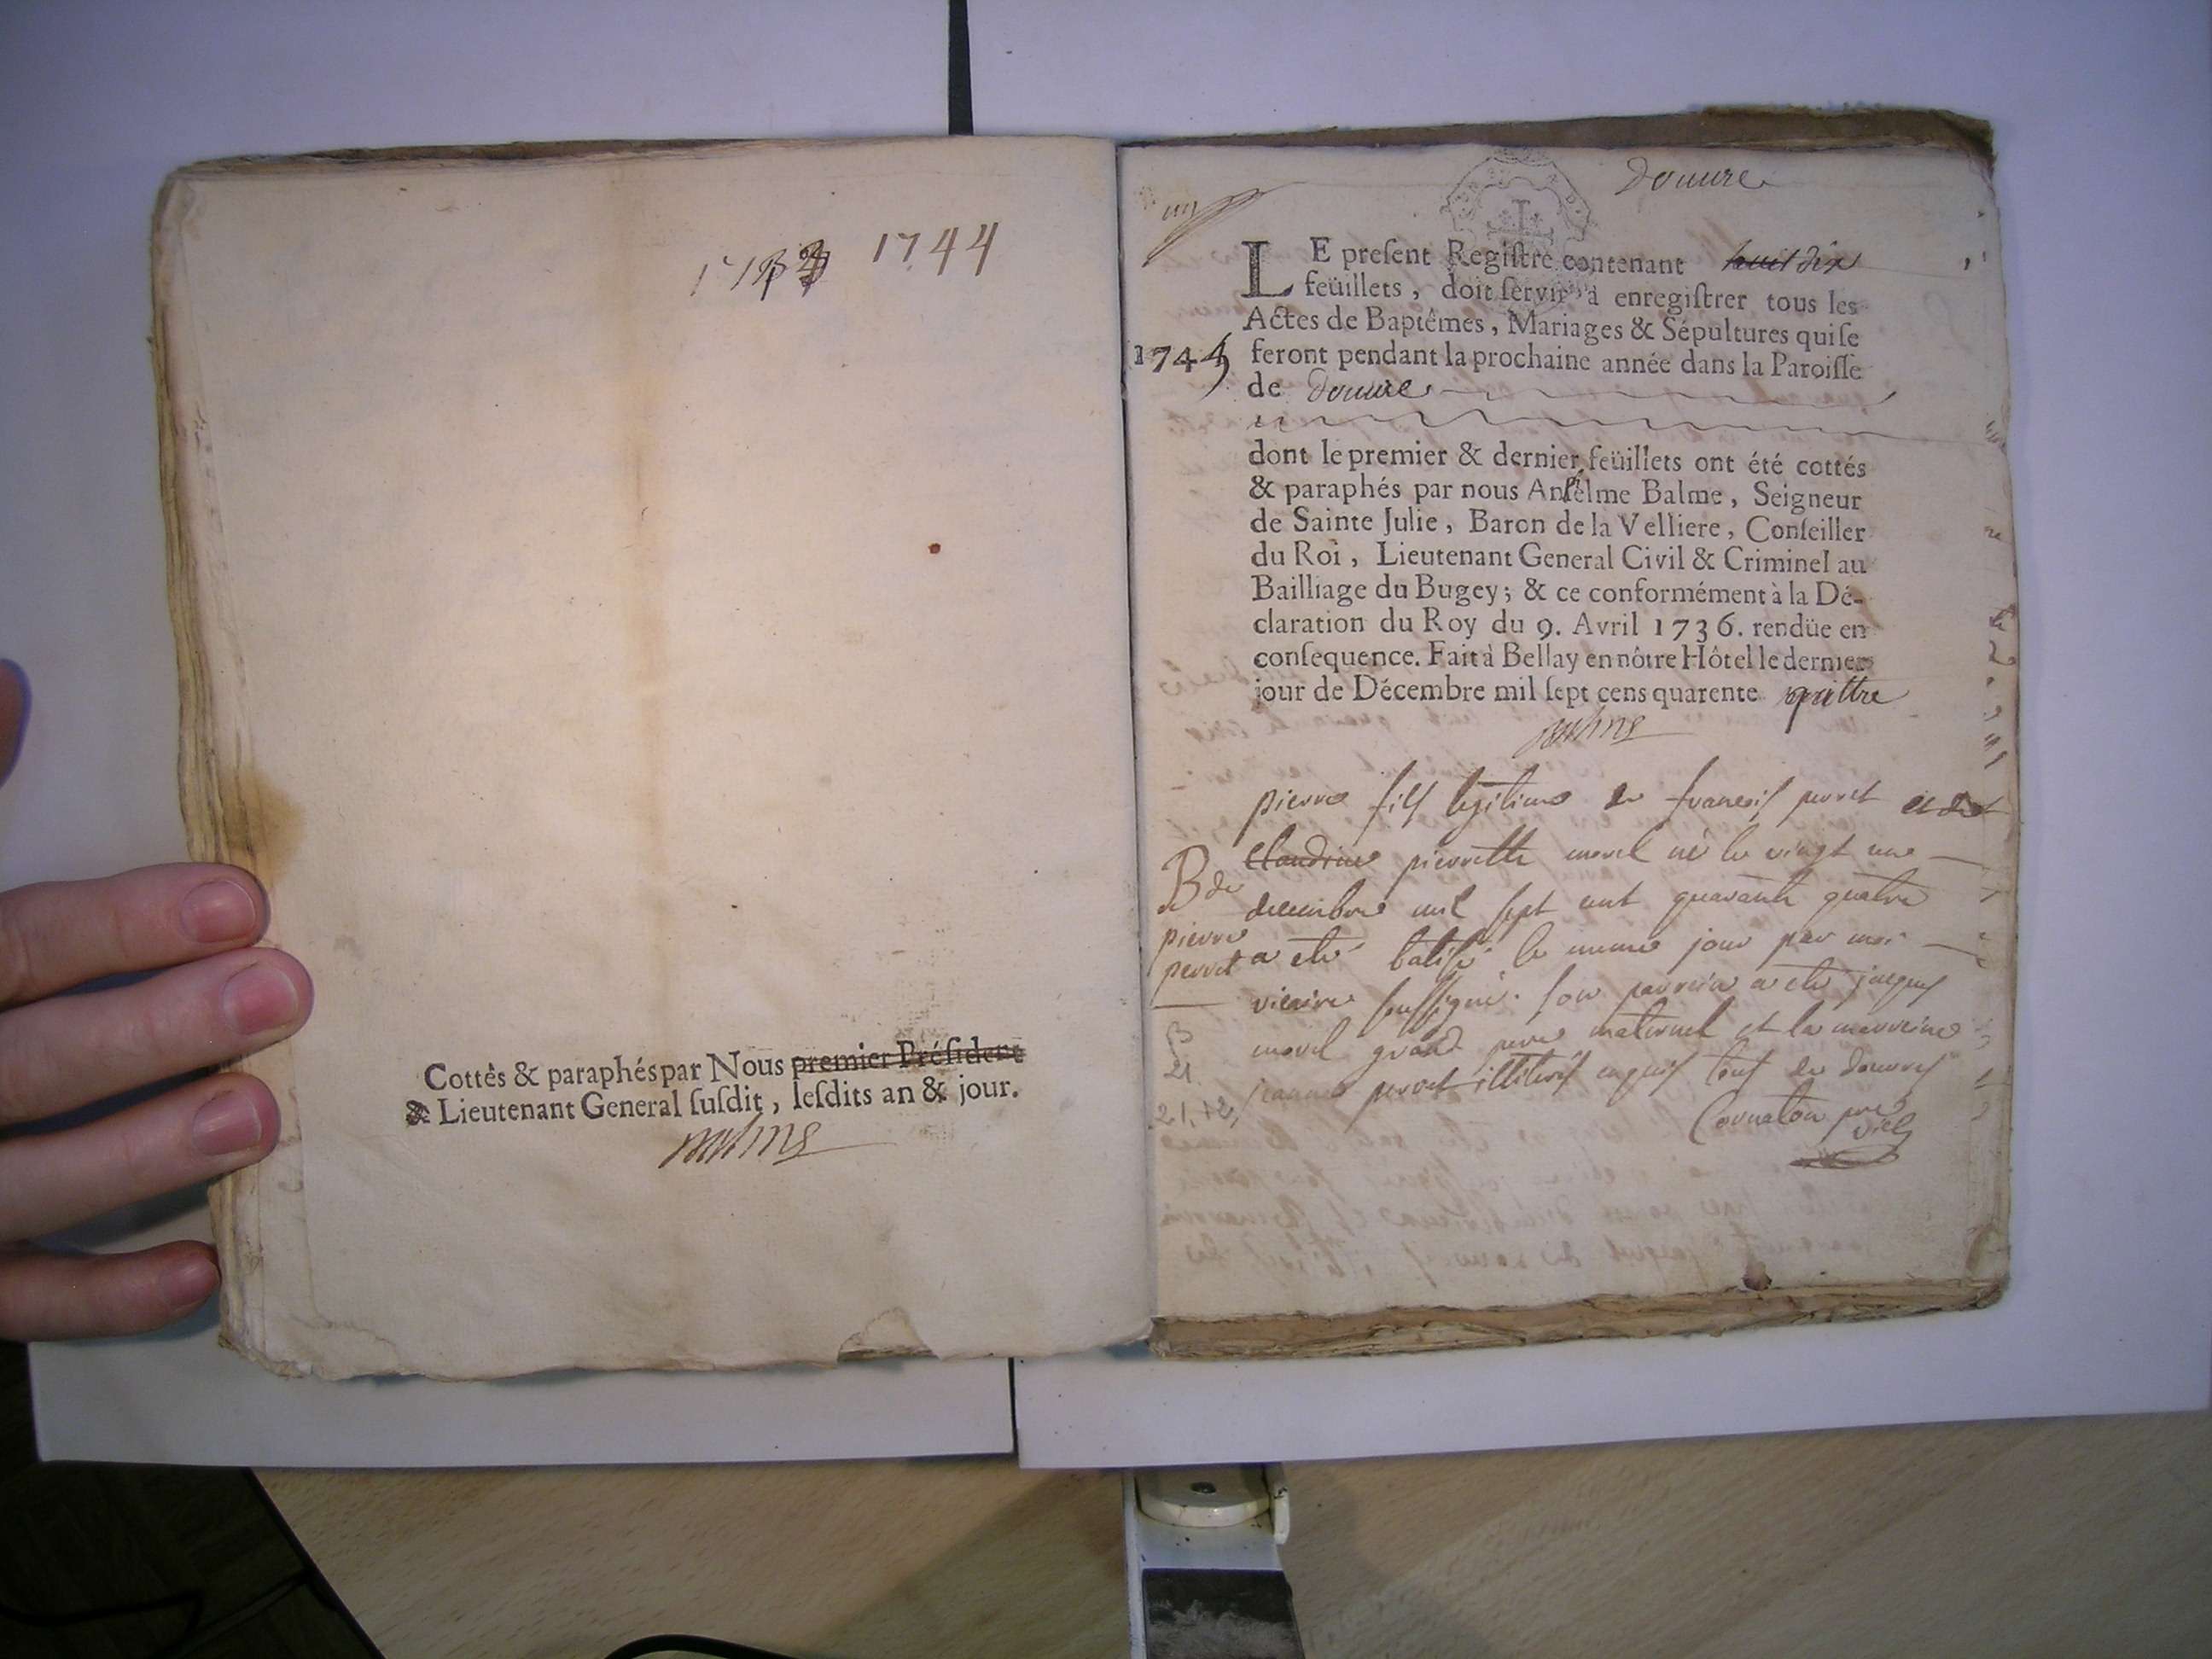 1744
Cottés & paraphés par Nous premier Président
& Lieutenant General ſuſdit, leſdits an & jour.
Balme
Douure
LE preſent Regiſtre contenant huit dix
feüillets, doit ſervir à enregiſtrer tous les
Actes de Baptêmes, Mariages & Sépultures qui ſe
1745 feront pendant la prochaine année dans la Paroiſſe
de Douure
dont le premier & dernier feüillets ont été cottés
& paraphés par nous Anſélme Balme, Seigneur
de Sainte Julie, Baron de la Velliere, Conſeiller
du Roi, Lieutenant General Civil & Criminel au
Bailliage du Bugey; & ce conformément à la Dé-
claration du Roy du 9. Avril 1736. rendüe en
conſequence. Fait à Bellay en nôtre Hôtel le dernier
jour de Décembre mil ſept cens quarente quattre
Balme
pierre fils legitime de francois perret et de
Claudine pierrette morel né le vingt une
decembre mil sept cent quarante quatre
a eté batisé le meme jour par moi
vicaire soussigné. son parrein a eté jacques
morel grand pere maternel et la marreine
jeanne perret illiterés enquis tous de douvres
Cornaton pre
vice
B de
pierre
perret
21